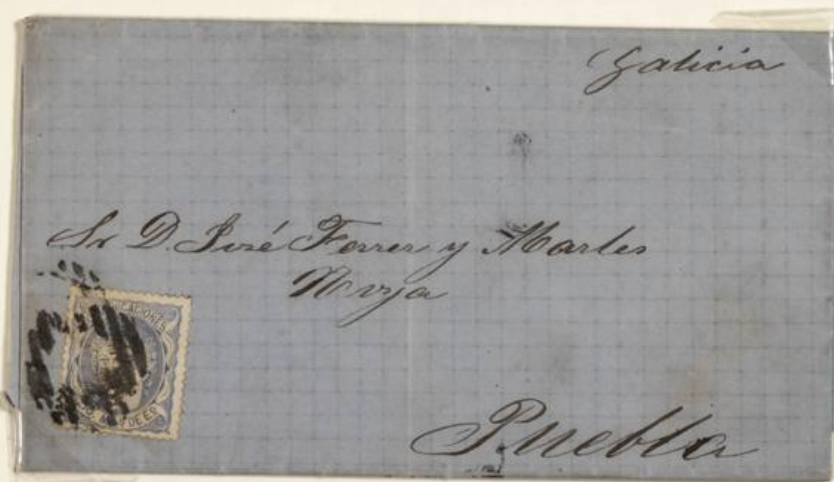 Galicia
Sr D. José Ferrer y Martes
Noya
CACIONES
Puebla